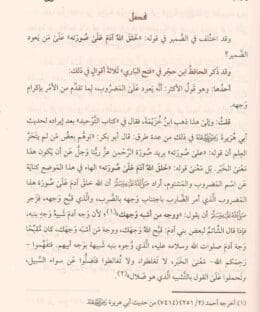 فصل
وقد اختلف في الضمير في قوله: «خلق الله آدم على صورته» على من يعود
الضمير؟
وقد ذكر الحافظ ابن حجر في «فتح الباري» ثلاثة أقوال في ذلك:
أحدها: وهو قول الأكثر: أنه يعود على المضروب، لما تقدم من الأمر بإكرام
وجهه.
قلت: وإلى هذا ذهب ابن خزيمة، فقال في «كتاب التوحيد» بعد إيراده لحديث
أبي هريرة في ذلك من عدة طرق. قال أبو بكر: «توهم بعض من لم يتحر
العلم أن قوله: «على صورته» يريد صورة الرحمن عز ربنا وجل عن أن يكون هذا
معنى الخبر، بل معنى قوله: «خلق الله آدم على صورته» الهاء في هذا الموضع كناية
عن اسم المضروب والمشتوم، أراد أن الله خلق آدم على صورة هذا
المضروب الذي أمر الضارب باجتناب وجهه بالضرب، والذي قبح وجهه، فزجر
أن يقول: «ووجه من أشبه وجهك»(١)، لأن وجه آدم شبيه وجوه بنيه،
فإذا قال الشاتم لبعض بني آدم: قبح الله وجهك، ووجه من أشبه وجهك، كان مقبحا
وجه آدم صلوات الله وسلامه عليه، الذي وجوه بنيه شبيهة بوجه أبيهم. فتفهموا -
رحمكم الله - معنى الخبر، لا تغلطوا ولا تغالطوا فتضلوا عن سواء السبيل،
وتحملوا على القول بالتشبيه الذي هو ضلال»(٢).
(١) أخرجه أحمد (٢/ ٢٥١) (٧٤١٤) من حديث أبي هريرة